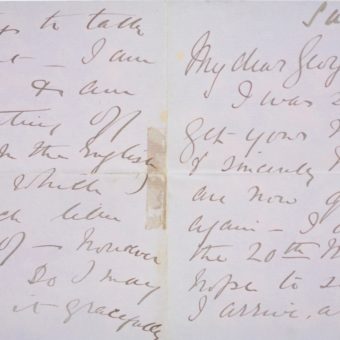 to talk
– I am
& am
thing of
In the English
which I
like
of – However
Do I may
it gracefully
My dear Geor
I was
get your
& sincerely
are now g
again – I
the 20th M
hope to s
I arrive, a